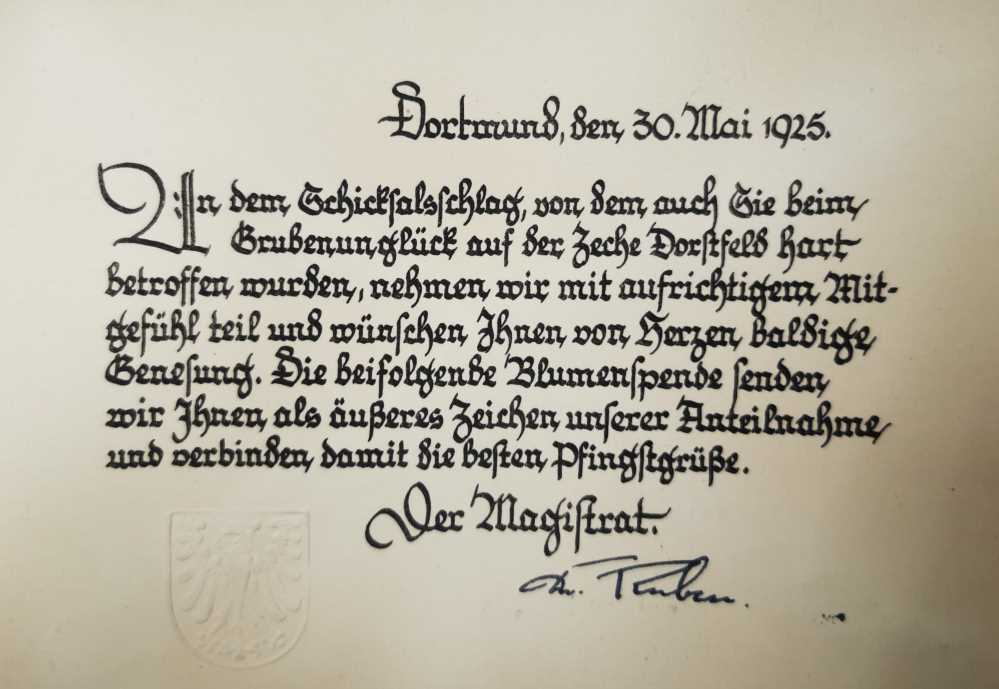 Dortmund, den 30. Mai 1925.
An dem Schicksalsschlag, von dem auch Sie beim
Grubenunglück auf der Zeche Dorstfeld hart
betroffen wurden, nehmen wir mit aufrichtigem Mit-
gefühl teil und wünschen Ihnen von Herzen baldige
Genesung. Die beifolgende Blumenspende senden
wir Ihnen als äußeres Zeichen unserer Anteilnahme
und verbinden damit die besten Pfingstgrüße.
Der Magistrat.
Dr.